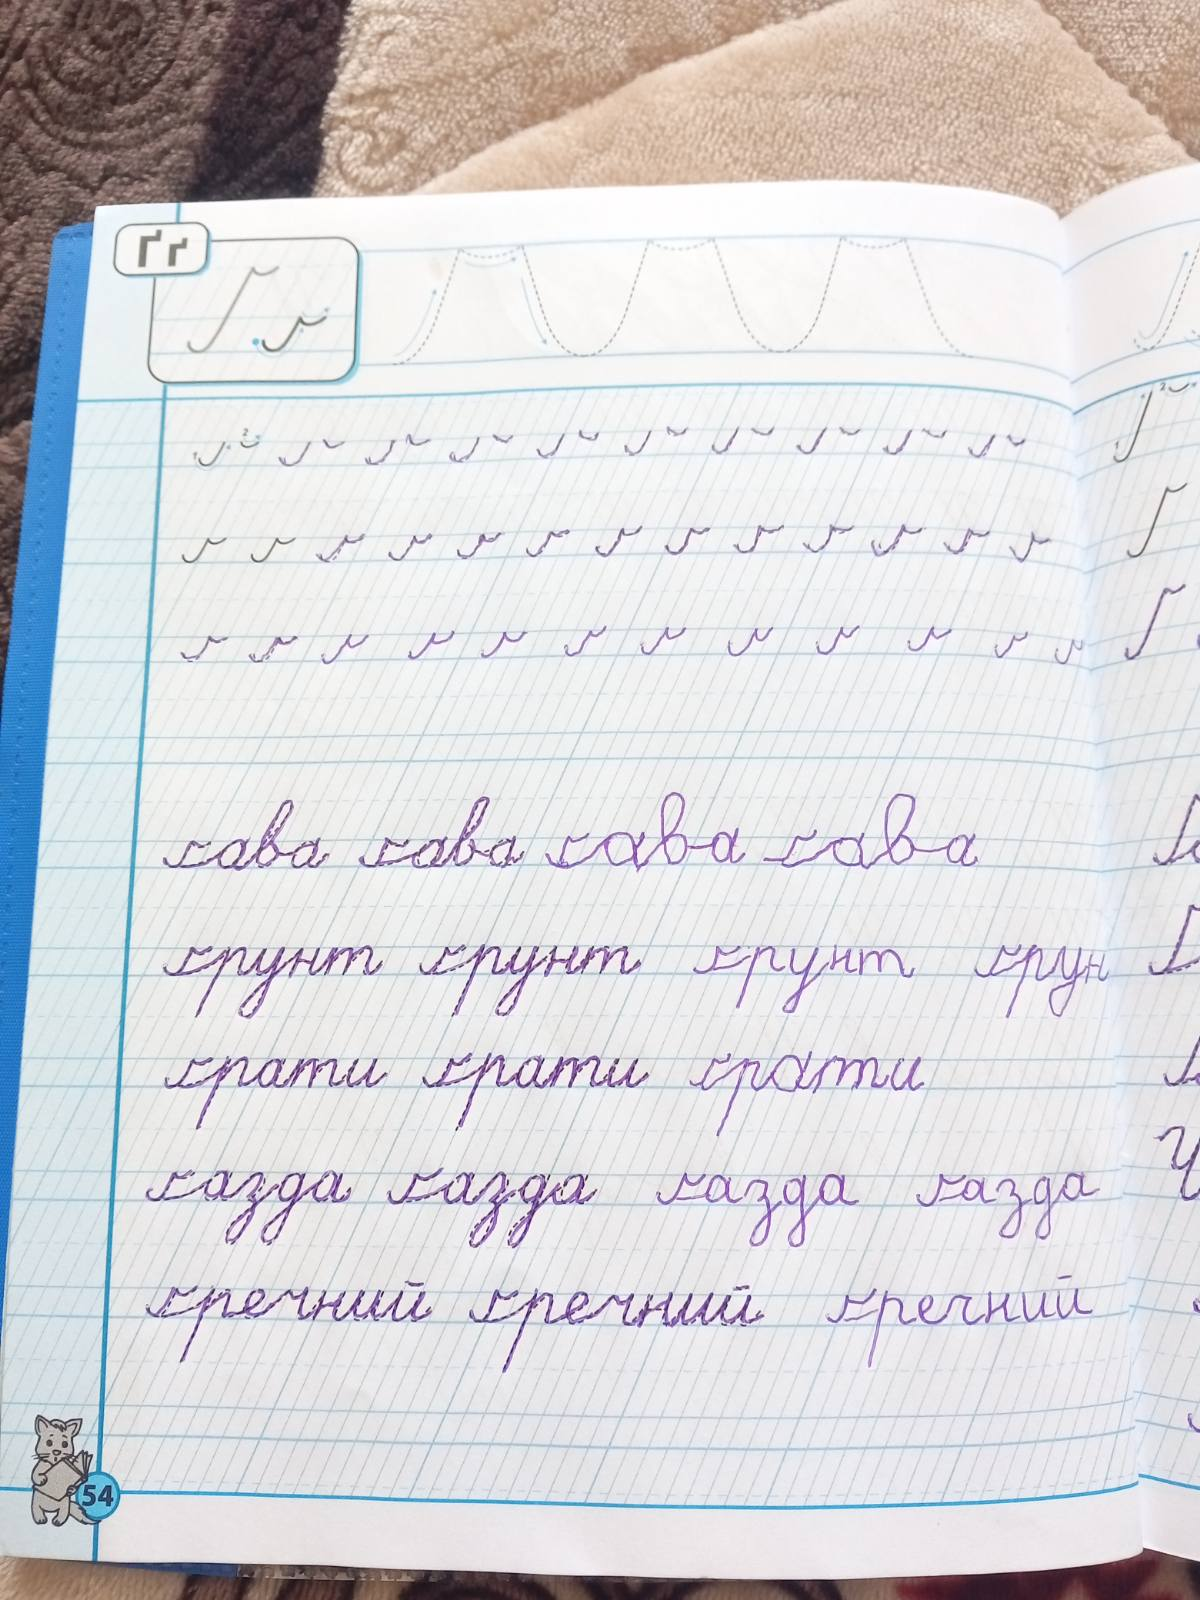 Ґґ
Ґ ґ
ґ ґ ґ ґ ґ ґ ґ ґ ґ ґ ґ ґ ґ
ґ ґ ґ ґ ґ ґ ґ ґ ґ ґ ґ ґ
ґава ґава ґава ґава
ґрунт ґрунт ґрунт ґрун
ґрати ґрати ґрати
ґазда ґазда ґазда ґазда
ґречний ґречний ґречний
54